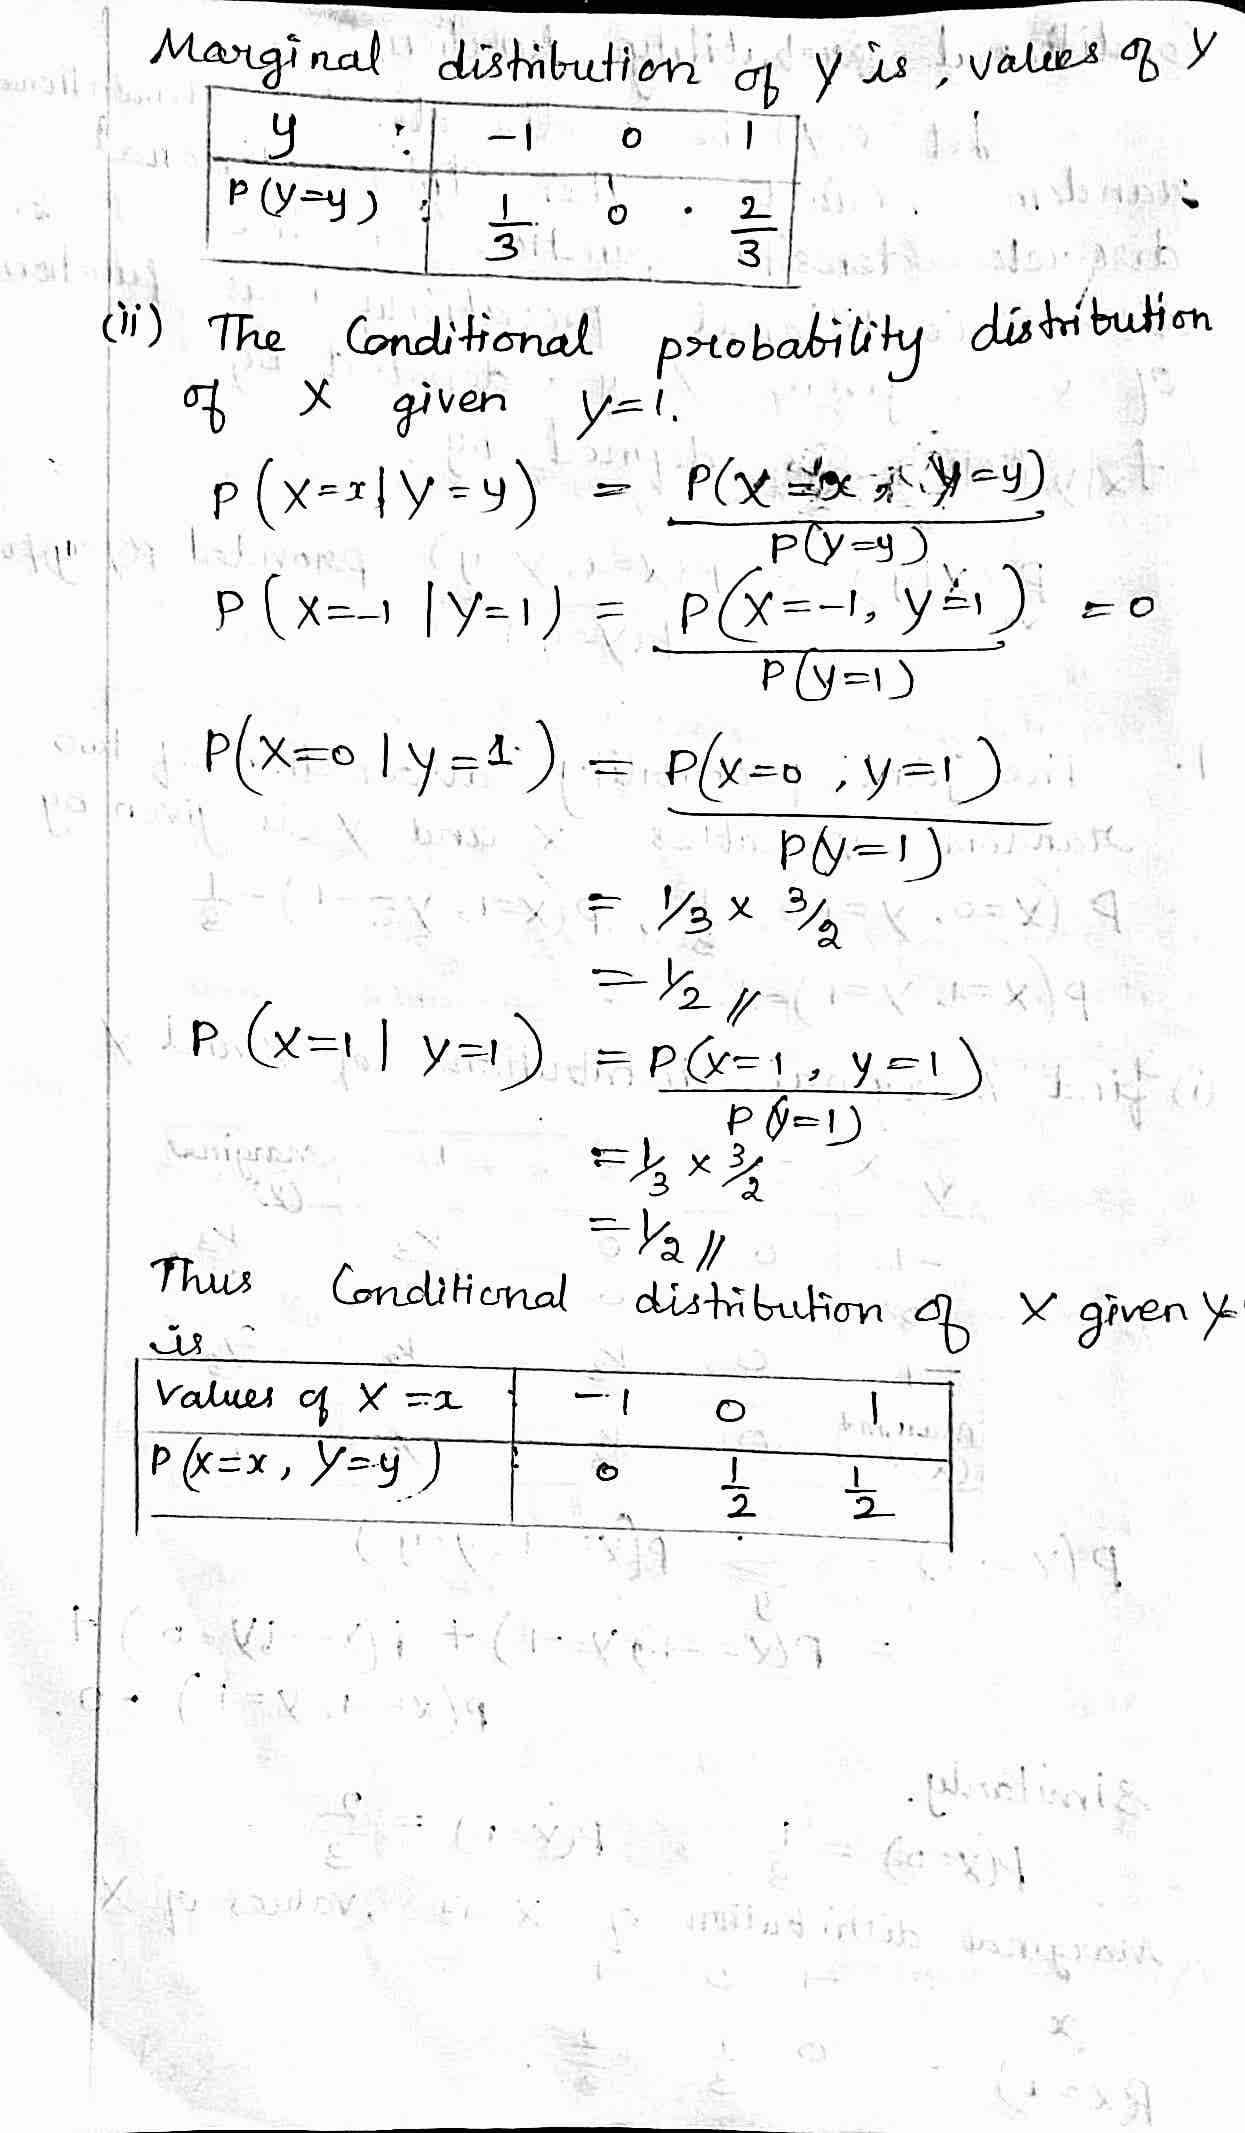 Marginal distribution of Y is, values of Y
y : -1 0 1
P(Y=y) : 1/3 0 2/3
(ii) The Conditional probability distribution
of X given Y=1.
P(X=x|Y=y) = P(X=x, Y=y)
P(Y=y)
P(X=-1 | Y=1) = P(X=-1, Y=1) = 0
P(Y=1)
P(X=0 | Y=1) = P(X=0, Y=1)
P(Y=1)
= 1/3 x 3/2
= 1/2 //
P(X=1 | Y=1) = P(X=1, Y=1)
P(Y=1)
= 1/3 x 3/2
= 1/2 //
Thus Conditional distribution of X given Y=
is
Values of X=x : -1 0 1
P(X=x, Y=y) : 0 1/2 1/2